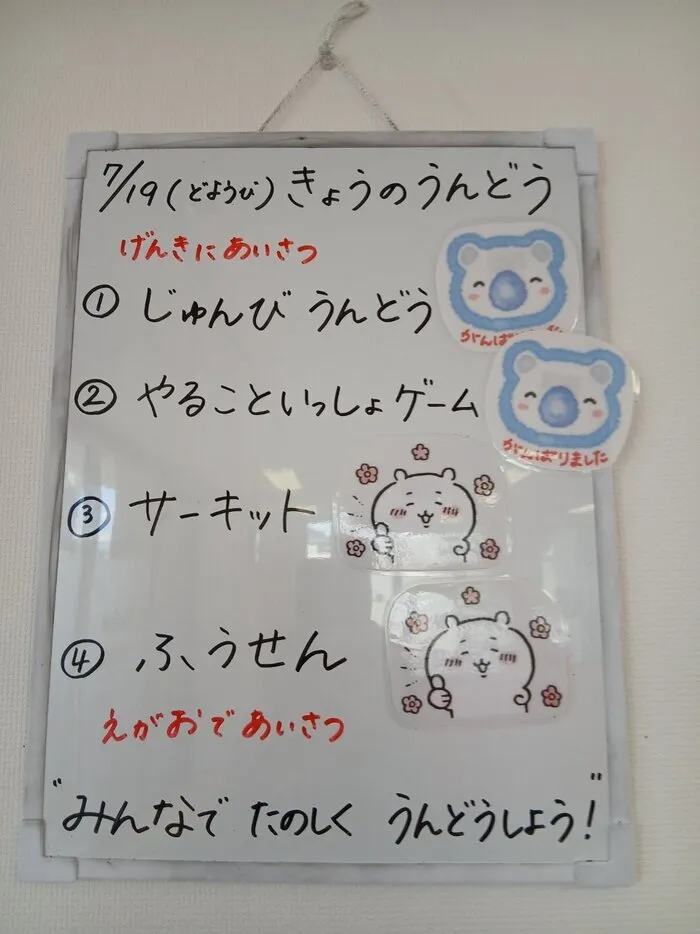 7/19(どようび)きょうのうんどう
げんきにあいさつ
① じゅんび うんどう
がんば
② やることいっしょゲーム
がんばりました
③ サーキット
④ ふうせん
えがおであいさつ
"みんなで たのしく うんどうしよう!"